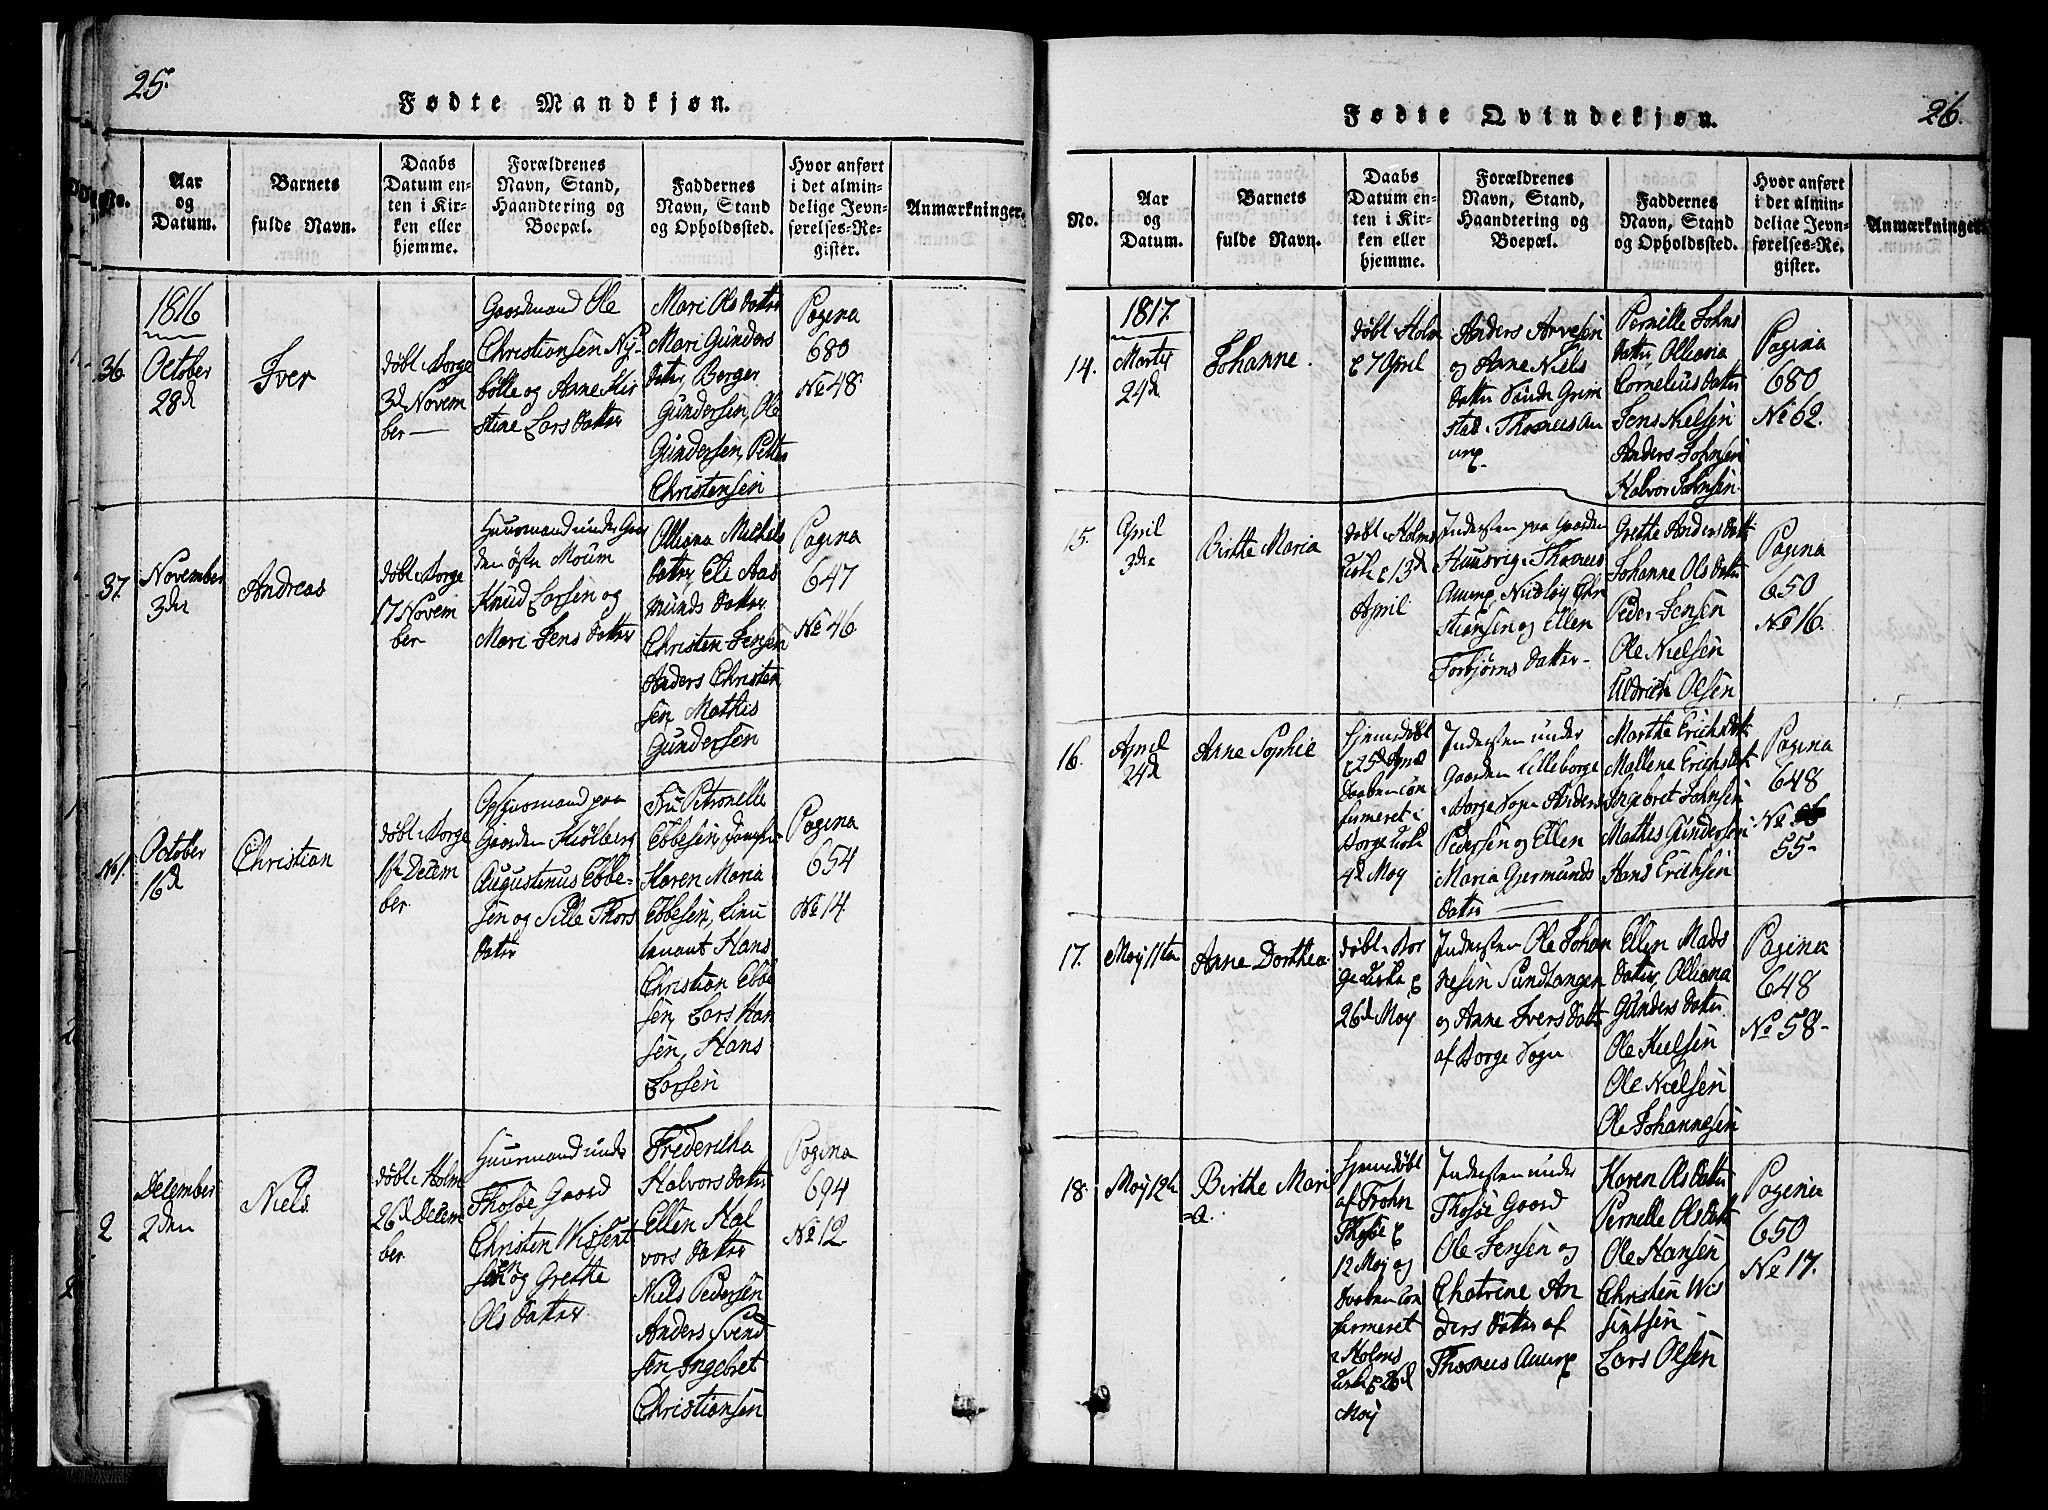 25.
Fødte Mandkjøn.
No.
Aar
og
Datum.
Barnets
fulde Navn.
Daabs
Datum en-
ten i Kir-
ken eller
hjemme.
Forældrenes
Navn, Stand,
Haandtering og
Boepæl.
Faddernes
Navn, Stand
og Opholdssted.
Hvor anført
i det almin-
delige Jevn-
førelses-Re-
gister.
Anmærkninger.
36
1816
October
28d
Iver
døbt i Borge
3d Novem
ber
Gaardmand Ole
Christiansen Ny-
bølle og Anne Kir
stine Lars datter
Mari Ols datter
Mari Gunders
datter, Berger
Gundersen, Ole
Gundersen, Petter
Christensen
Pagina
680
No 48
37
November
3die
Andreas
døbt i Borge
17 Novem
ber
Huusmand under Gaar
den øste Moum
Knud Larsen og
Mari Jens datter
Olliana Michels
datter, Eli Aas
munds datter
Christen Jensen
Anders Christen
sen, Mathis
Gundersen
Pagina
647
No 46
No 1.
October
16d
Christian
døbt i Borge
1st Decem
ber
Opsidder paa
Gaarden Kiølberg
Augustinus Ebbe-
sen og Sille Thors
datter
Fru Petronelle
Ebbesen, Jomfru
Karen Maria
Ebbesen, Lieu
tenant Hans
Christian Ebbe
sen, Lars Han
sen, Hans
Larsen
Pagina
654
No 14
2
December
2den
Niels
døbt i Holm
26d Decem
ber
Huusmand under
Thosøe Gaard
Christen Wissent
sen og Grethe
Ols datter
Frederikha
Halvors datter
Ellen Hal
vors datter
Niels Pedersen
Anders Svend
sen, Ingebret
Christiansen
Pagina
694
No 12
26.
Fødte Qvindekjøn.
No.
Aar
og
Datum.
Barnets
fulde Navn.
Daabs
Datum en-
ten i Kir-
ken eller
hjemme.
Forældrenes
Navn, Stand,
Haandtering og
Boepæl.
Faddernes
Navn, Stand
og Opholdssted.
Hvor anført
i det almin-
delige Jevn-
førelses-Re-
gister.
Anmærkninger.
14.
1817
Marty
24d
Johanne.
døbt i Holm
7 April
Anders Arvesen
og Anne Niels
datter Grim
stad i Thosnes An
nex
Pernille Johns
datter, Olliana
Cornelius datter
Jens Nielsen
Anders Johnsen
Halvor Johnsen
Pagina
680
No 62.
15.
April
3die
Birthe Maria
døbt i Holms
kirke 13de
April
Inderster paa Gaarden
Huusvig i Thosnes
Annex, Nicolay Chri
stiansen og Ellen
Torbjørns datter
Grethe Anders datt
Johanne Ols datter
Peder Jensen
Ole Nielsen
Uldrich Olsen
Pagina
650
No 16.
16.
April
24d
Anne Sophie
Hjemedøbt
25d April
Daaben con
firmeret i
Borge kirke
4d May
Inderster under
Gaarden Lilleborge
i Borge Sogn Anders
Pedersen og Ellen
Maria Gjermunds
datter
Marthe Erichs datt
Mallene Erichs datt
Ingebret Johnsen
Mathis Gundersen
Hans Erichsen
Pagina
648
No
55
17.
May 11te
Anne Dorthea
døbt i Bor
ge kirke
26d May
Inderster Ole Johan
nesen Sundtangen
og Anne Ivers datt
af Borge Sogn
Ellen Mads
datter, Olliana
Gunders datter
Ole Kielsen
Ole Nielsen
Ole Johannesen
Pagina
648
No 58
18.
May 12te
Birthe Mari
=a.
Hjemedøbt
af
Thosøe
12 May og
Daaben con
firmeret
i Holms
kirke 26d
May
Inderster under
Thosøe Gaard
Ole Jensen og
Chatrine An
ders datter af
Thosnes Annex
Karen Ols datter
Pernelle Ols datt
Ole Hansen
Christen Wis
sentsen
Lars Olsen
Pagina
650
No 17.